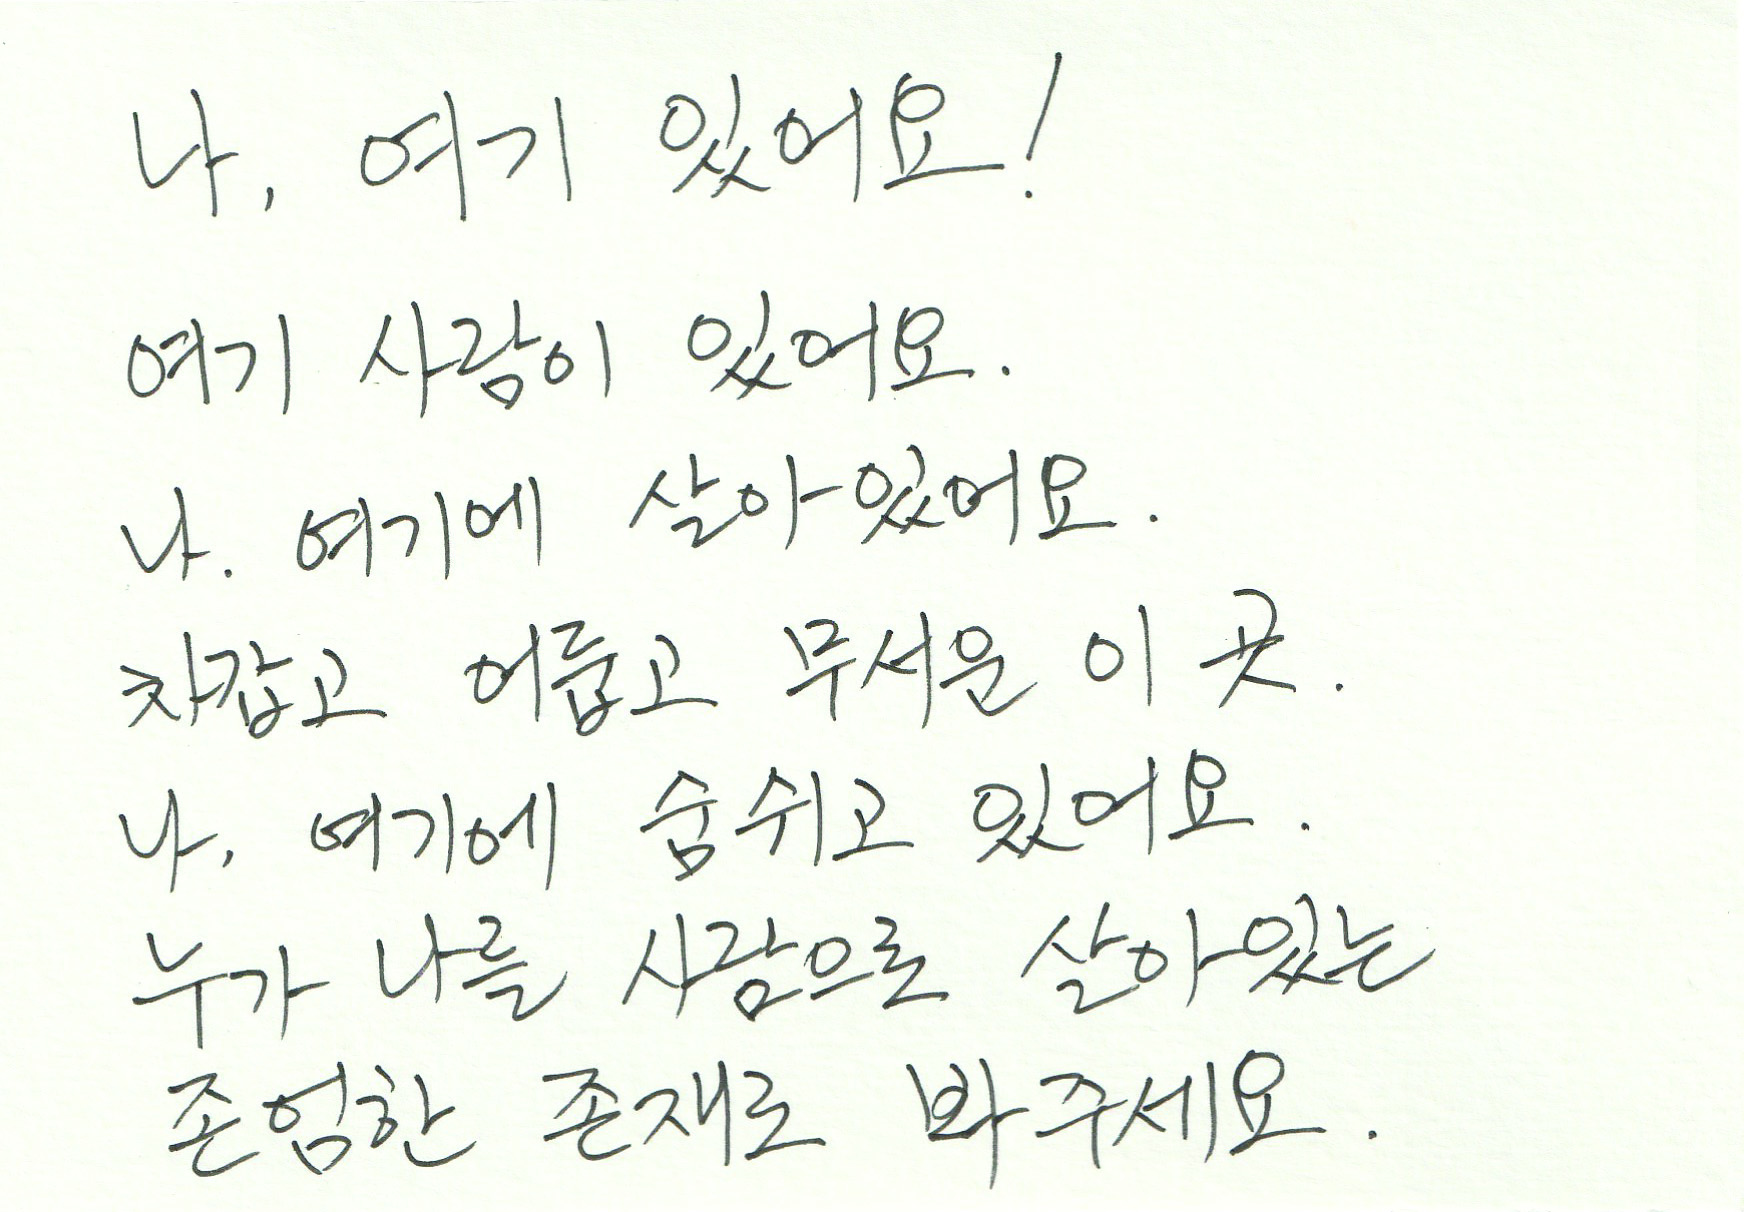 나, 여기 있어요!
여기 사람이 있어요.
나. 여기에 살아있어요.
차갑고 어둡고 무서운 이 곳.
나, 여기에 숨쉬고 있어요.
누가 나를 사람으로 살아있는
존엄한 존재로 봐주세요.